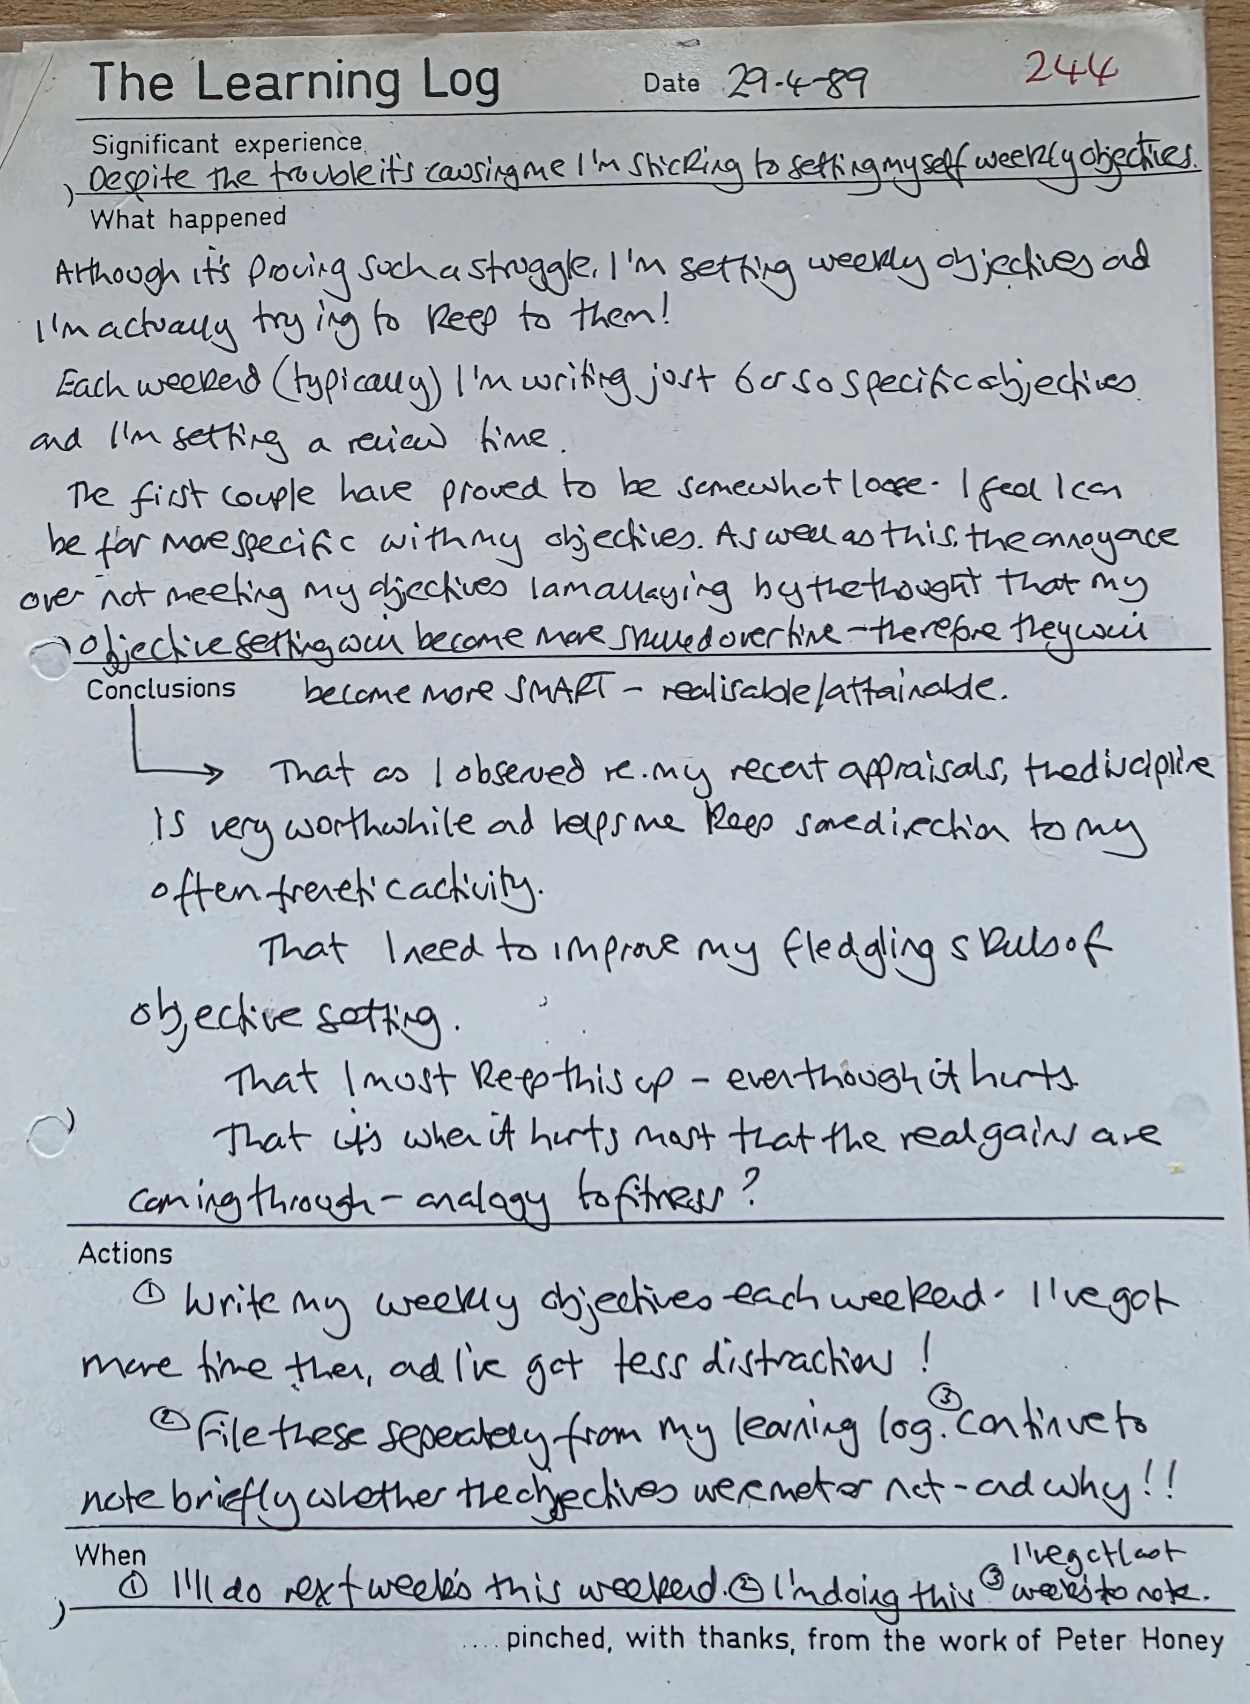 The Learning Log Date 29-4-89 244
Significant experience
Despite the trouble it's causing me I'm sticking to setting myself weekly objectives.
What happened
Although it's proving such a struggle, I'm setting weekly objectives and
I'm actually trying to keep to them!
Each weekend (typically) I'm writing just 6 or so specific objectives
and I'm setting a review time.
The first couple have proved to be somewhat loose. I feel I can
be far more specific with my objectives. As well as this, the annoyance
over not meeting my objectives I am allaying by the thought that my
objective setting will become more skilled over time - therefore they will
become more SMART - realisable/attainable.
Conclusions
That as I observed re. my recent appraisals, the discipline
is very worthwhile and helps me keep some direction to my
often frenetic activity.
That I need to improve my fledgling skills of
objective setting.
That I must keep this up - even though it hurts
That it's when it hurts most that the real gains are
coming through - analogy to fitness?
Actions
① Write my weekly objectives each weekend. I've got
more time then, and I've got less distractions!
② File these seperately from my learning log. ③ Continue to
note briefly whether the objectives were met or not - and why!!
When
① I'll do next week's this weekend. ② I'm doing this ③ I've got last
week's to note.
.... pinched, with thanks, from the work of Peter Honey